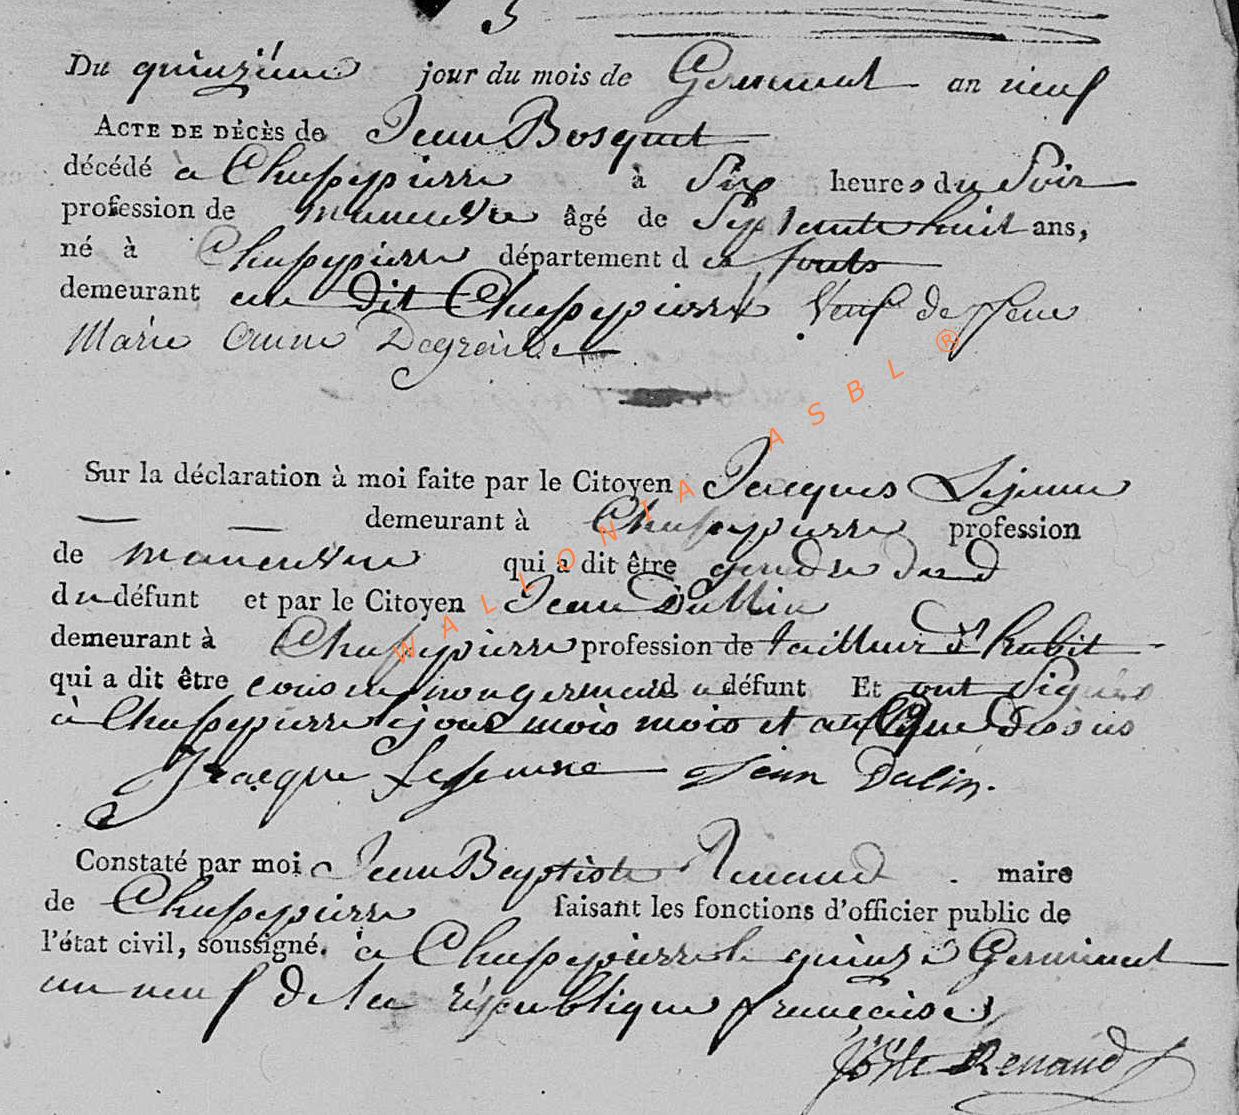 3
Du quinzième jour du mois de Germinal an neuf
ACTE DE DÉCÈS de Jean Bosquet
décédé à Chassepierre à Six heures du Soir
profession de maneuvre âgé de Septante huit ans,
né à Chassepierre département des forets
demeurant au dit Chassepierre Veuf de feue
Marie Anne
Sur la déclaration à moi faite par le Citoyen Jacques Lejeune
demeurant à Chassepierre profession
de maneuvre qui a dit être gendre dud
du défunt et par le Citoyen Jean Dullin
demeurant à Chassepierre profession de tailleur d'habit
qui a dit être cousin non germain du défunt Et ont Signés
à Chassepierre les jour mois mois et an que dessus
Jean Dalin.
Constaté par moi Jean Baptiste Renaud maire
de Chassepierre faisant les fonctions d'officier public de
l'état civil, soussigné. à Chassepierre le quinze Germinal
an neuf de la république francaise
Renaud
WALLONIA ASBL ®